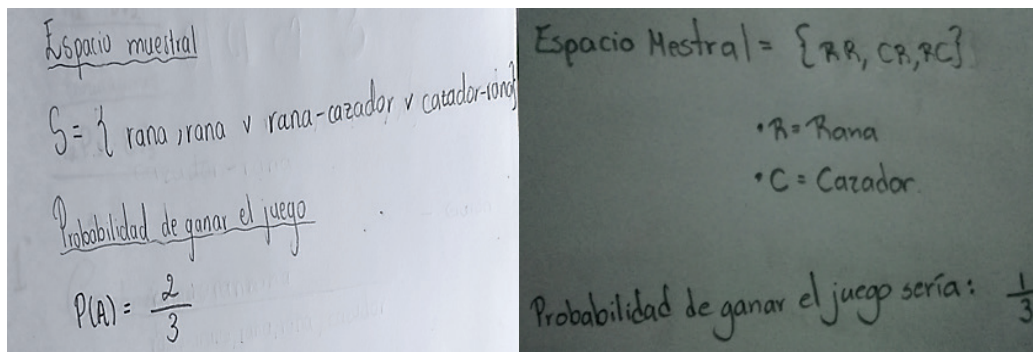 Espacio muestral
S = { rana, rana v rana-cazador v cazador-rana}
Probabilidad de ganar el juego
P(A) = 2/3
Espacio Mestral = {RR, CR, RC}
• R = Rana
• C = Cazador.
Probabilidad de ganar el juego sería: 1/3